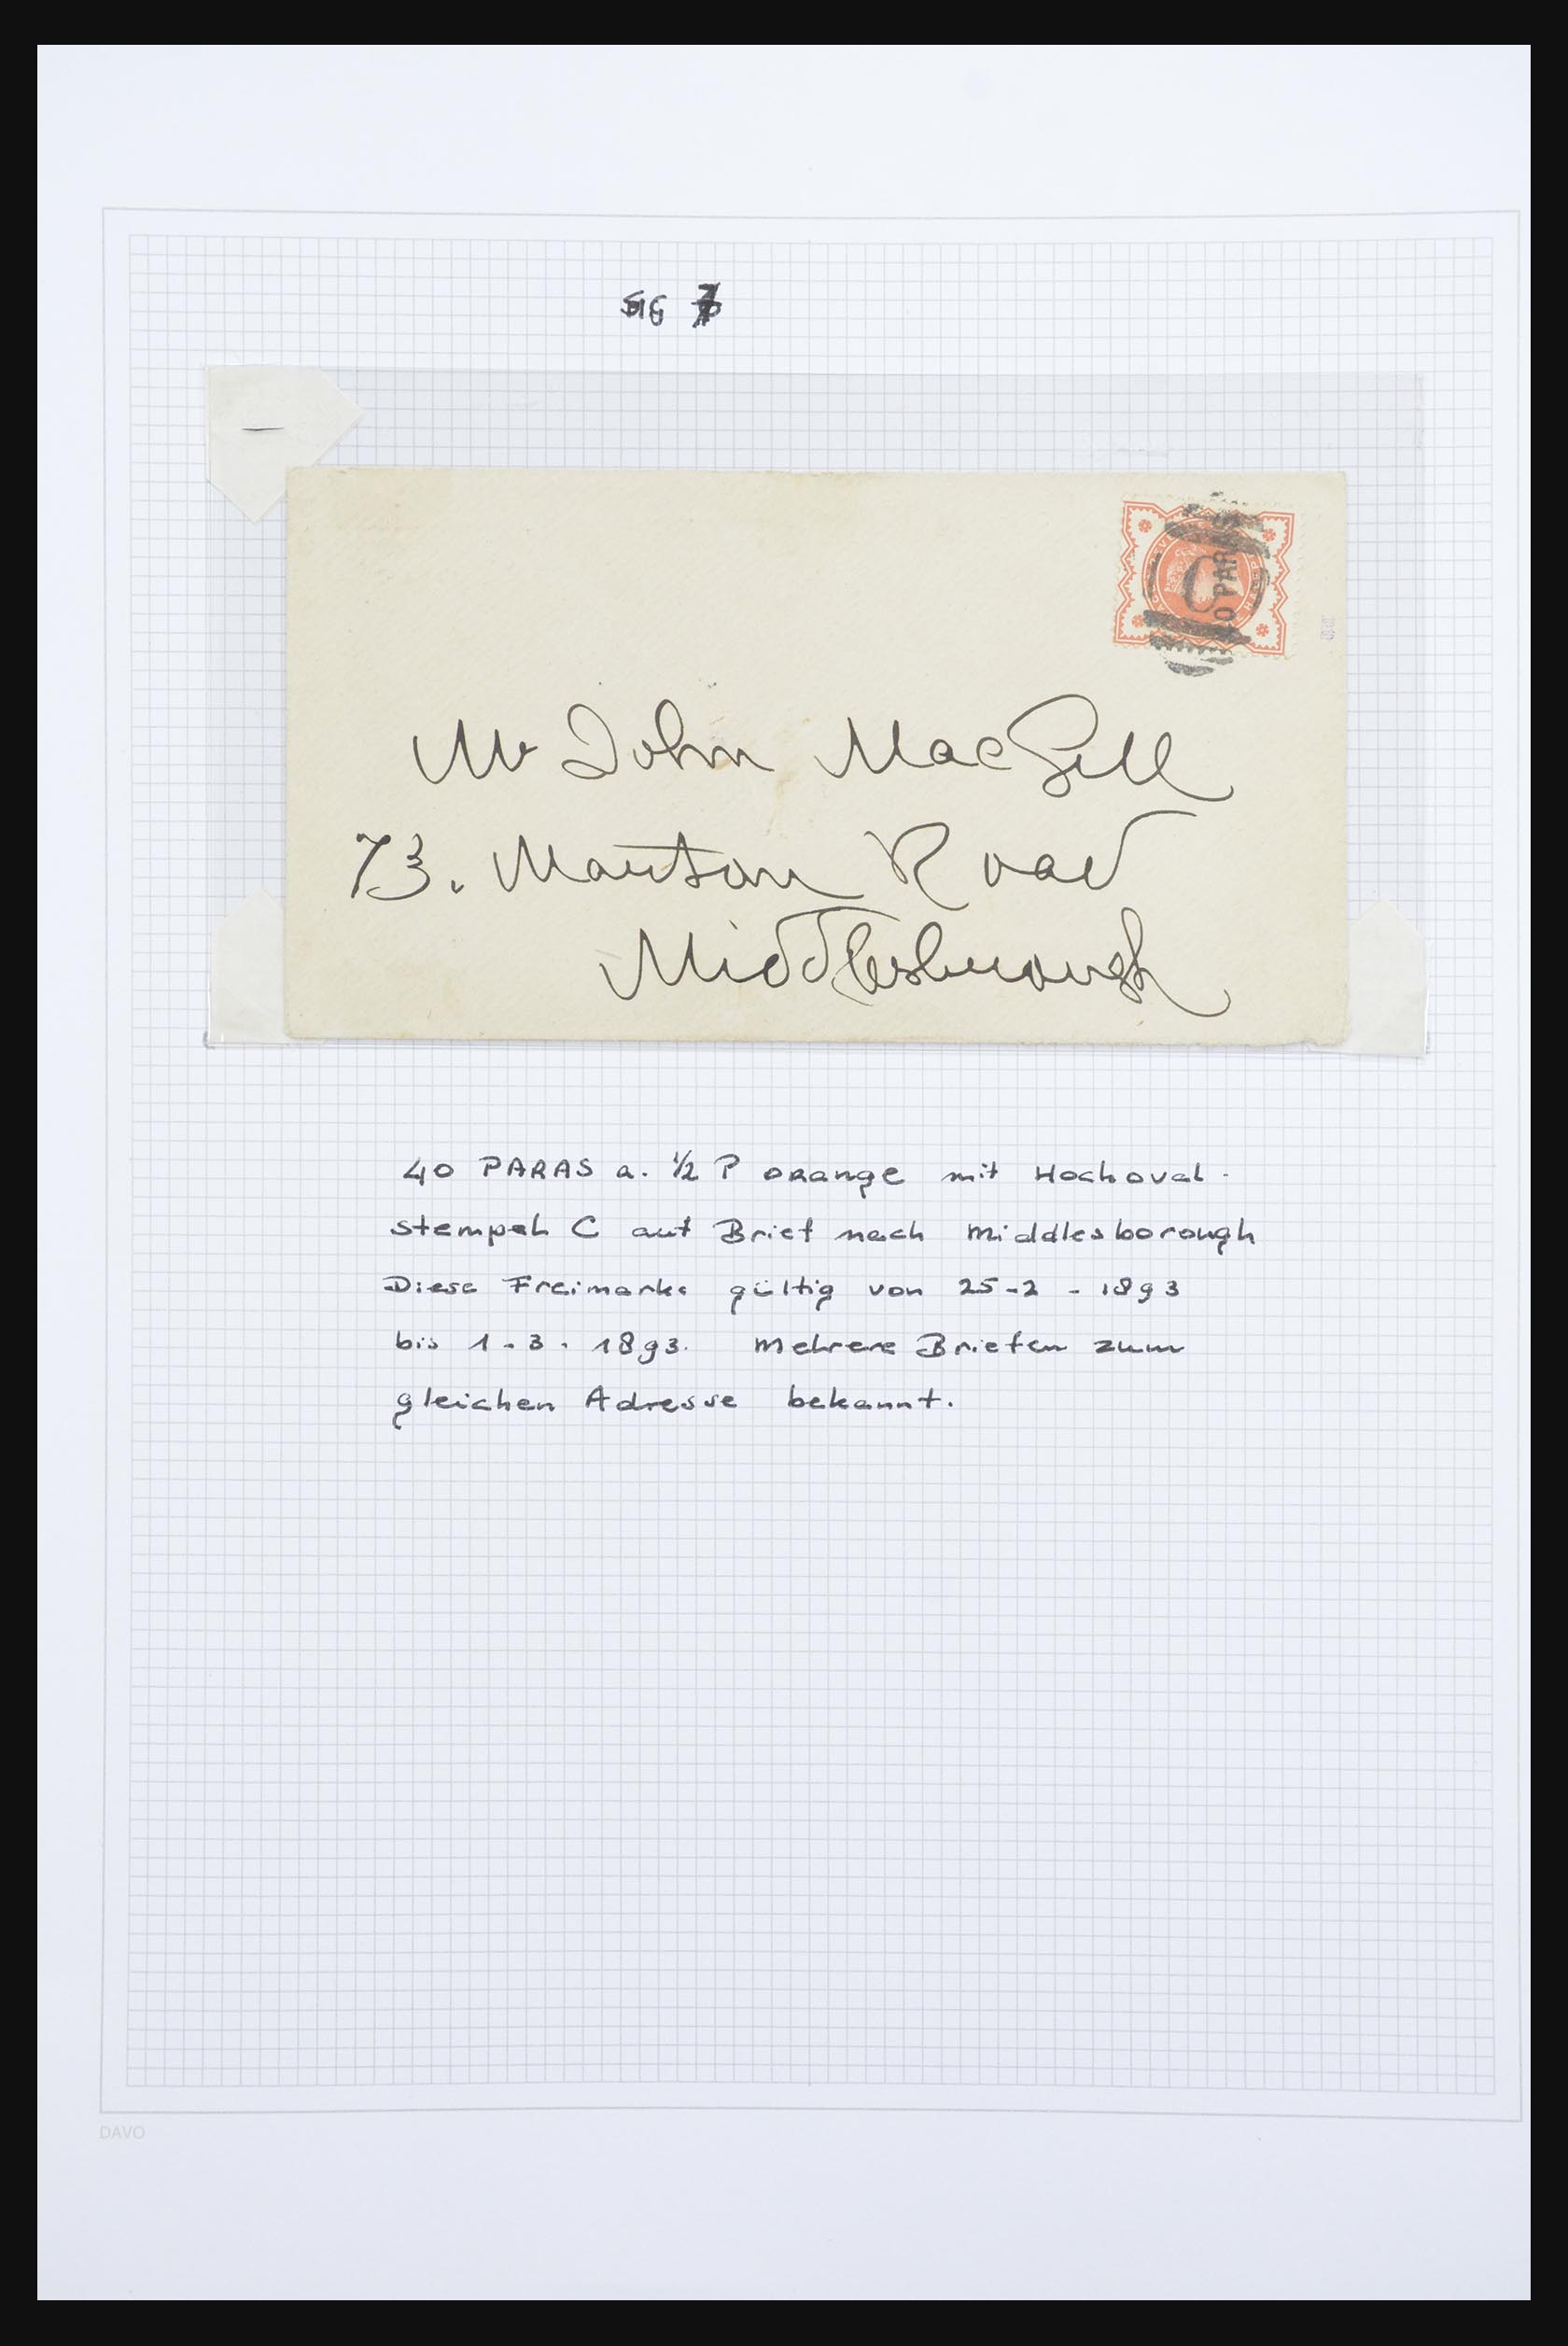 SG 7
40 PARAS
C
Mr John MacGill
73. Manton Road
Middlesbrough
40 PARAS a. ½ P orange mit Hochoval-
stempel C auf Brief nach Middlesborough
Diese Freimarke gültig von 25-2-1893
bis 1.3.1893. Mehrere Briefen zum
gleichen Adresse bekannt.
DAVO